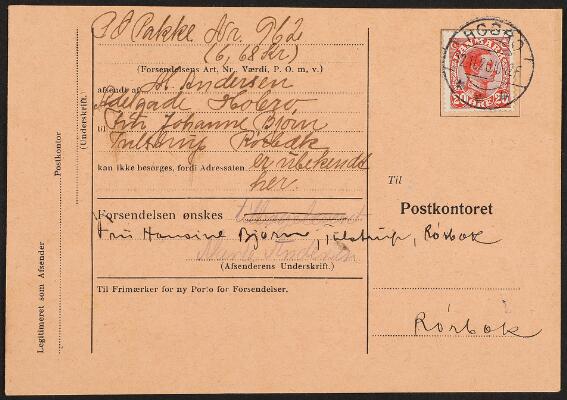 PO Pakke Nr. 962
(6,68 Kr)
(Forsendelsens Art, Nr., Værdi, P. O. m, v.)
afsendt af M. Andersen
Adelgade Hobro
til Frk Johanne Bjørn
Tulstrup Rörbæk
kan ikke besørges, fordi Adressaten er ubekendt
her.
Forsendelsen ønskes
Fru Hansine Bjørn, Tulstrup, Rörbæk
(Afsenderens Underskrift.)
Til Frimærker for ny Porto for Forsendelser.
Legitimeret som Afsender
Postkontor
(Underskrift.)
HOBRO
DANMARK
20 ØRE 20
Til
Postkontoret
Rörbæk